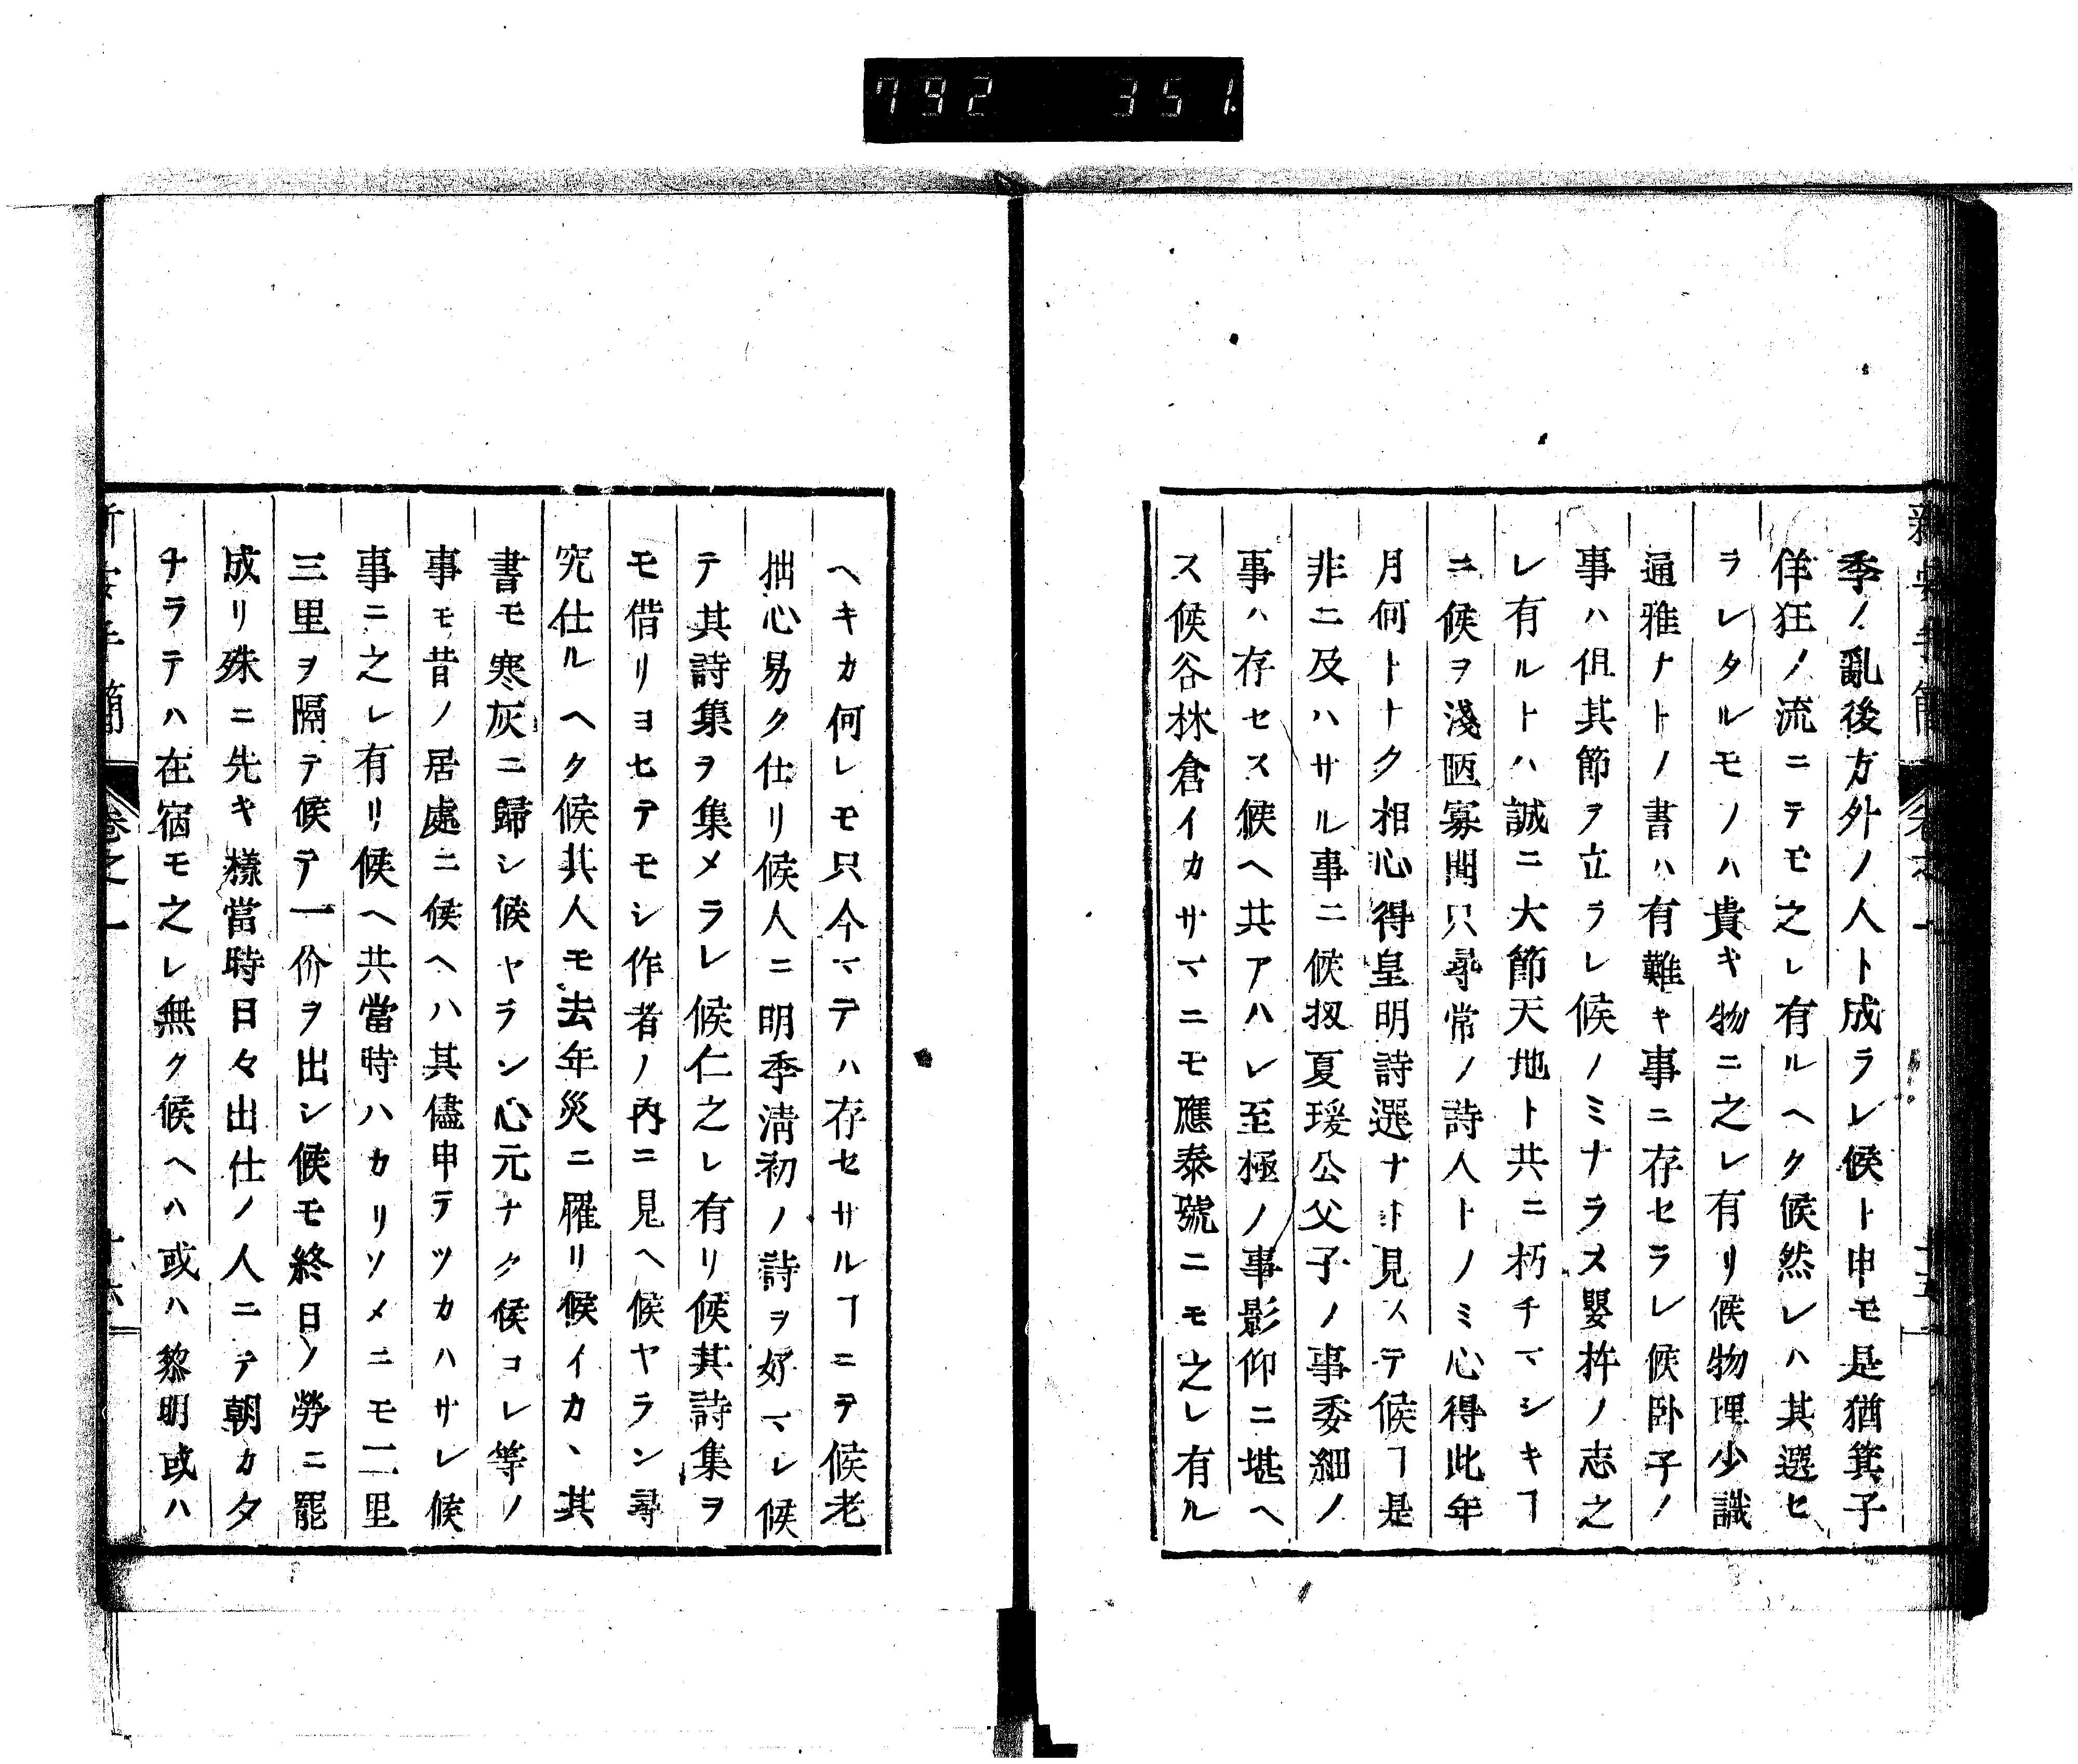 792 351
季ノ亂後方外ノ人ト成ラレ候ト申モ是猶箕子
佯狂ノ流ニテモ之レ有ルヘク候然レハ其選セ
ラレタルモノハ貴キ物ニ之レ有リ候物理少識
通雅ナトノ書ハ有難キ事ニ存セラレ候卧子ノ
事ハ伹其節ヲ立ラレ候ノミナラス嬰杵ノ志之
レ有ルトハ誠ニ大節天地ト共ニ朽チマシキヿ
ニ候ヲ淺陋寡聞只尋常ノ詩人トノミ心得此年
月何トナク相心得皇明詩選ナト見ステ候ヿ是
非ニ及ハサル事ニ候扨夏瑗公父子ノ事委細ノ
事ハ存セス候ヘ共アハレ至極ノ事影仰ニ堪ヘ
ス候谷林倉イカサマニモ應泰號ニモ之レ有ル
ヘキカ何レモ只今マテハ存セサルヿニテ候老
拙心易ク仕リ候人ニ明季淸初ノ詩ヲ好マレ候
テ其詩集ヲ集メラレ候仁之レ有リ候其詩集ヲ
モ借リヨセテモシ作者ノ內ニ見ヘ候ヤラン尋
究仕ルヘク候其人モ去年災ニ罹リ候イカヽ其
書モ寒灰ニ歸シ候ヤラン心元ナク候コレ等ノ
事モ昔ノ居處ニ候ヘハ其儘申テツカハサレ候
事ニ之レ有リ候ヘ共當時ハカリソメニモ二里
三里ヲ隔テ候テ一价ヲ出シ候モ終日ノ勞ニ罷
成リ殊ニ先キ樣當時日々出仕ノ人ニテ朝カタ
ナラテハ在宿モ之レ無ク候ヘハ或ハ黎明或ハ
卷之一